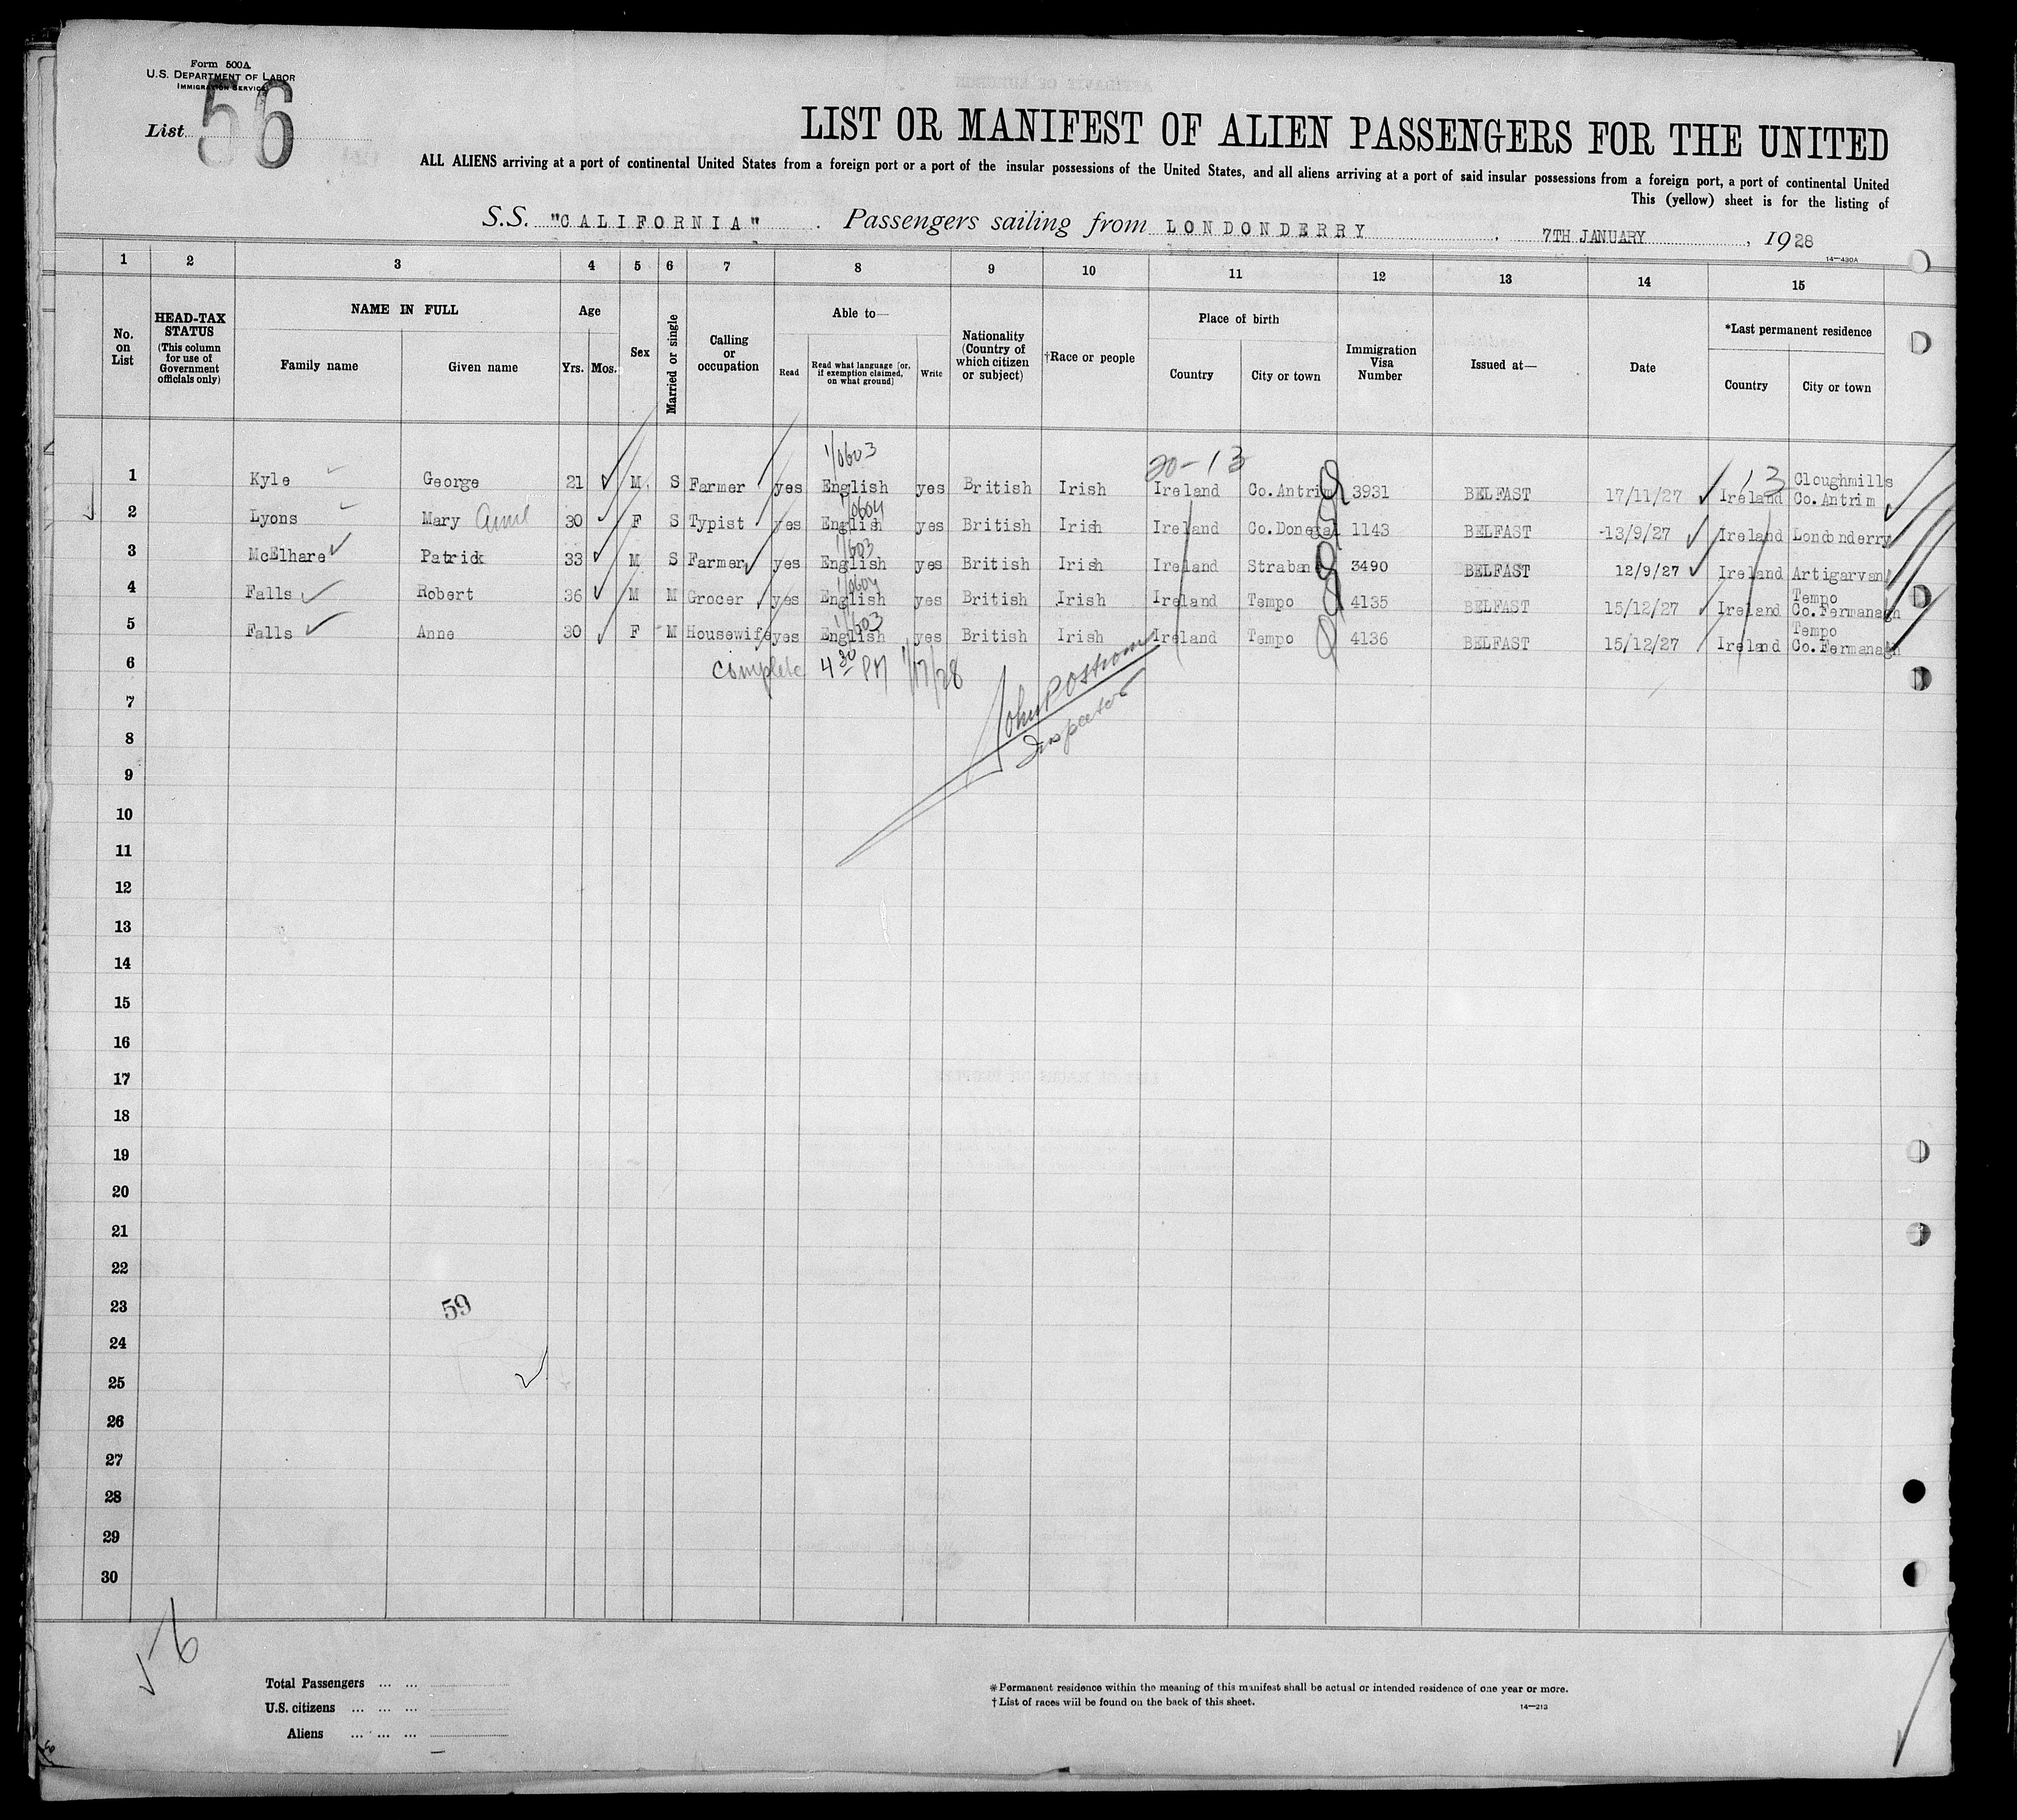 Form 500A
U.S. DEPARTMENT OF LABOR
IMMIGRATION SERVICE
List 56
LIST OR MANIFEST OF ALIEN PASSENGERS FOR THE UNITED
ALL ALIENS arriving at a port of continental United States from a foreign port or a port of the insular possessions of the United States, and all aliens arriving at a port of said insular possessions from a foreign port, a port of continental United
This (yellow) sheet is for the listing of
S.S. "CALIFORNIA" . Passengers sailing from LONDONDERRY , 7TH JANUARY , 1928
14—430A
1 2 3 4 5 6 7 8 9 10 11 12 13 14 15
No. on List
HEAD-TAX STATUS (This column for use of Government officials only)
NAME IN FULL
Family name Given name
Age
Yrs. Mos.
Sex
Married or single
Calling or occupation
Able to—
Read
Read what language [or, if exemption claimed, on what ground]
Write
Nationality (Country of which citizen or subject)
†Race or people
Place of birth
Country City or town
Immigration Visa Number
Issued at—
Date
*Last permanent residence
Country City or town
1/0603
20-13
13
1 Kyle George 21 M S Farmer yes English yes British Irish Ireland Co.Antrim 3931 BELFAST 17/11/27 Ireland Cloughmills Co.Antrim
1/0604
2 Lyons Mary Anne 30 F S Typist yes English yes British Irish Ireland Co.Donegal 1143 BELFAST 13/9/27 Ireland Londonderry
1/603
3 McElhare Patrick 33 M S Farmer yes English yes British Irish Ireland Strabane 3490 BELFAST 12/9/27 Ireland Artigarvan
1/0604
4 Falls Robert 36 M M Grocer yes English yes British Irish Ireland Tempo 4135 BELFAST 15/12/27 Ireland Tempo Co.Fermanagh
1/603
5 Falls Anne 30 F M Housewife yes English yes British Irish Ireland Tempo 4136 BELFAST 15/12/27 Ireland Tempo Co.Fermanagh
6 Complete 4 30 PM 1/17/28
John P Ostrom
Inspector
7
8
9
10
11
12
13
14
15
16
17
18
19
20
21
22
23
59
24
25
26
27
28
29
30
56
Total Passengers ... ...
U.S. citizens ... ... ...
Aliens ... ... ...
*Permanent residence within the meaning of this manifest shall be actual or intended residence of one year or more.
†List of races will be found on the back of this sheet.
14—213